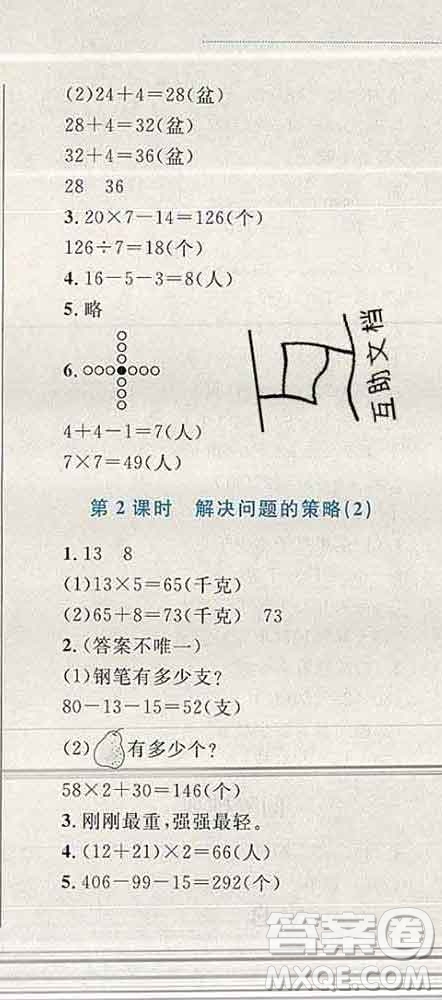 (2)24+4=28(盆)
28+4=32(盆)
32+4=36(盆)
28 36
3.20×7-14=126(个)
126÷7=18(个)
4.16-5-3=8(人)
5.略
6.
4+4-1=7(人)
7×7=49(人)
互助文档
第2课时 解决问题的策略(2)
1.13 8
(1)13×5=65(千克)
(2)65+8=73(千克) 73
2.(答案不唯一)
(1)钢笔有多少支?
80-13-15=52(支)
(2)有多少个?
58×2+30=146(个)
3.刚刚最重,强强最轻。
4.(12+21)×2=66(人)
5.406-99-15=292(个)
答案圈
MXQE.COM